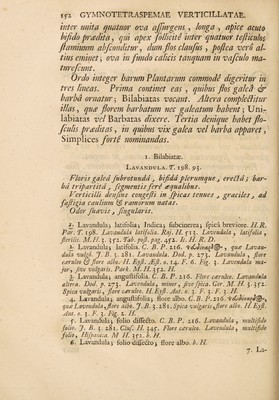 152 GYMNOTETRASPEMAE VERTICILLATAE.
inter unita quatuor ova assurgent, longa, apice acuto
bifido prædita, qui apex sollicitè inter quatuor testiculos
staminum absconditur, dum flos clausus, postea verò al-
tius eminet; ova in fundo calicis tanquam in vasculo ma-
turescunt.
Ordo integer harum Plantarum commodè digeritur in
tres lineas. Prima continet eas, quibus flos galeâ &
barbâ ornatur; Bilabiatas vocant. Altera complectitur
illas, quæ florem barbatum nec galeatum habent; Uni-
labiatas vel Barbatas dixere. Tertia denique habet flo-
sculis præditas, in quibus vix galea vel barba apparet,
Simplices fortè nominandas.
1. Bilabiatæ.
LAVANDULA. T. 198. 93.
Floris galeâ subrotundâ, bifidâ plerumque, erectâ; bar-
bâ tripartitâ, segmentis ferè æqualibus.
Verticilli densius congesti in spicas tenues, graciles, ad
fastigia caulium & ramorum natas.
Odor suavis, singularis.
1. Lavandula; latifolia; Indica; subcinerea; spicâ breviore. H. R.
Par. T. 198. Lavandula latifolia,
sterilis. M. H. 3. 352.
2. Lavandula; latifolia. C. B. P. 216.
dula vulgò. J. B. 3. 281. Lavandula. Dod. p. 273. Lavandula, flore
cæruleo & flore albo. H. Eyst.
jor, sive vulgaris. Park. M. H. 352. H.
3. Lavandula; angustifolia. C. B. P. 216. Flore cæruleo. Lavandula
altera. Dod. p. 273. Lavandula, minor, sive spica. Ger. M. H. 3. 352.
Spica vulgaris, flore cæruleo. H. Eyst.
4. Lavandula; angustifolia; flore albo. C. B. P. 216.
quæ flore albo. J. B. 3. 281. Spica vulgaris, flore albo. H. Eyst.
5. Lavandula; folio dissecto. C. B. P. 216. Lavandula, multifido
folio. J. B. 3. 281. Clus. H. 345. Flore cæruleo. Lavandula, multifido
folio, Hispanica. M. H. 351. b. H.
6. Lavandula; folio dissecto; flore albo. b. H.
7. La-